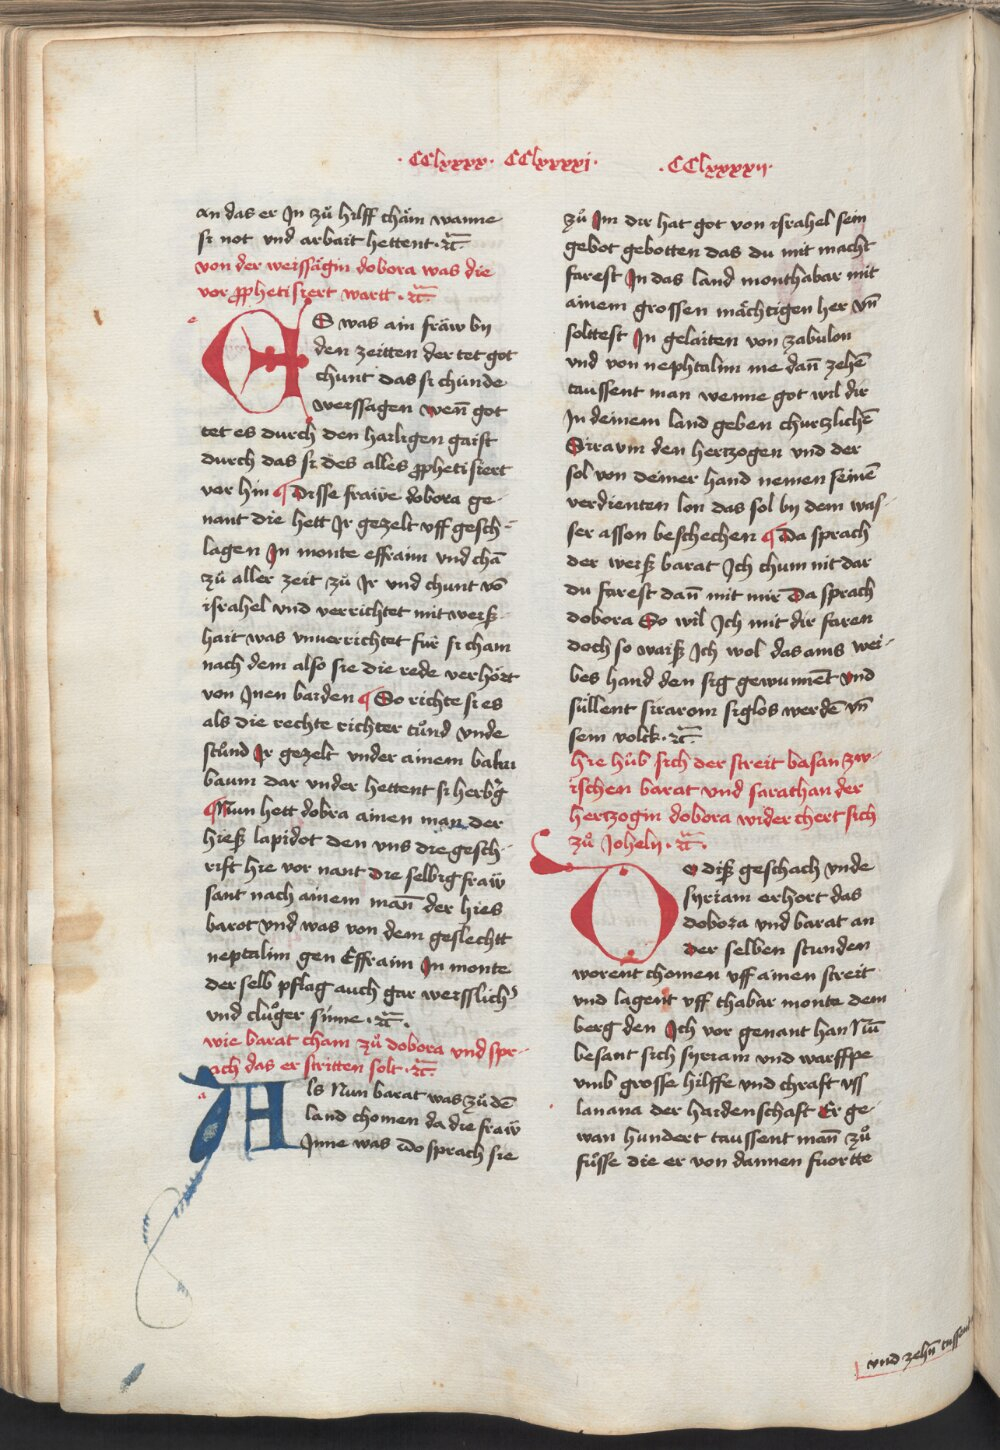 ·CClxxxx· CClxxxxi· ·CClxxxxij·
an das er Jn zů hilff chäm wanne
si not vnd arbait hettent · ꝛc̄
von der weissägin dobora was die
vor ꝓphetisiert wartt · ꝛc̄
ES was ain fräw by
den zeitten der tet got
chunt das si chunde
weissagen wen̄ got
tet es durch den hailigen gaist
durch das si des alles ꝓphetisiert
vor hin ¶ Disse fraẅe dobora ge-
nant die hett Jr gezelt vff gesch-
lagen Jn monte effraim vnd chā
zů aller zeit zů Jr vnd chunt vō
israhel vnd verrichtet mit weiß-
hait was vnuerrichtet für si cham
nach dem also sie die rede verhört
von Jnen baiden ¶ So richte si es
als die rechte richter tůnd vnde
stůnd Jr gezelt vnder ainem balm
baum dar vnder hettent si herbg̓
¶ Nun hett dobra ainen man der
hieß lapidot den vns die gesch-
rift hie vor nant die selbig fraẅ
sant nach ainem man̄ der hies
barot vnd was von dem geslechtt
neptalim gen Effraim Jn monte
der selb pflag auch gar weisslich̓
vnd clůger sinne · ꝛc̄ ·
wie barat cham zů dobora vnd spr-
ach das er stritten solt · ꝛc̄
Als Nun barat was zů dē
land chomen da die fraẅ
Jnne was Do sprach sie
zů Jm dir hat got von israhel sein
gebot gebotten das du mit macht
farest Jn das land monthabar mit
ainem grossen mächtigen her vn̄
solttest Jn gelaiten von zabulon
vnd von nephtalim me dan̄ zehē
taussent man wenne got wil dir
Jn deinem land geben churtzlichē
Sirarum den hertzogen vnd der
sol von deiner hand nemen seinē
verdienten lon das sol by dem was-
ser asson beschechen ¶ Da sprach
der weiß barat Jch chum nit dar
du farest dan̄ mit mir Da sprach
dobora So wil Jch mit dir faren
doch so waiß Jch wol das ains wei-
bes hand den sig gewunnēt vnd
süllent sirarom siglos werdē vn̄
sein volck · ꝛc̄
hie hůb sich der streit basan zw-
ischen barat vnd sarathan der
hertzogin dobora wider chert sich
zů Johelij · ꝛc̄ ·
Do diß geschach vnde
syriam erhort das
dobora vnd barat an
der selben stunden
worent chomen vff ainen streit
vnd lagent vff thabar monte dem
berg den Jch vor genant han Nū
besant sich syriam vnd warffpe
vmb grosse hilffe vnd chraft vss
lanana der haidenschaft Er ge-
wan hundert taussent man̄ zů
fůsse die er von dannen fuortte
vnd zehn̄ tussent